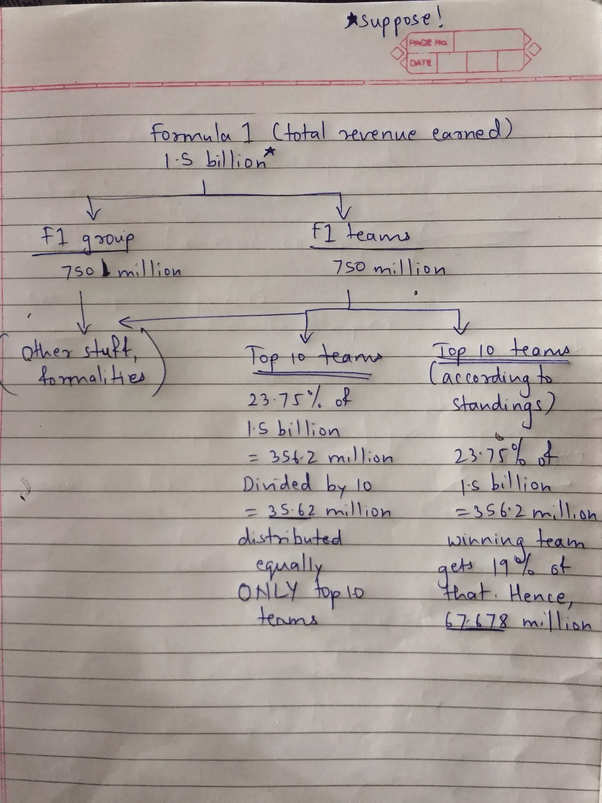 *suppose!
PAGE No.
DATE
Formula 1 (total revenue earned)
1.5 billion*
F1 group
750 million
F1 teams
750 million
(Other stuff,
formalities)
Top 10 teams
23.75% of
1.5 billion
= 356.2 million
Divided by 10
= 35.62 million
distributed
equally
ONLY top 10
teams
Top 10 teams
(according to
standings)
23.75% of
1.5 billion
=356.2 million
winning team
gets 19% of
that. Hence,
67.678 million